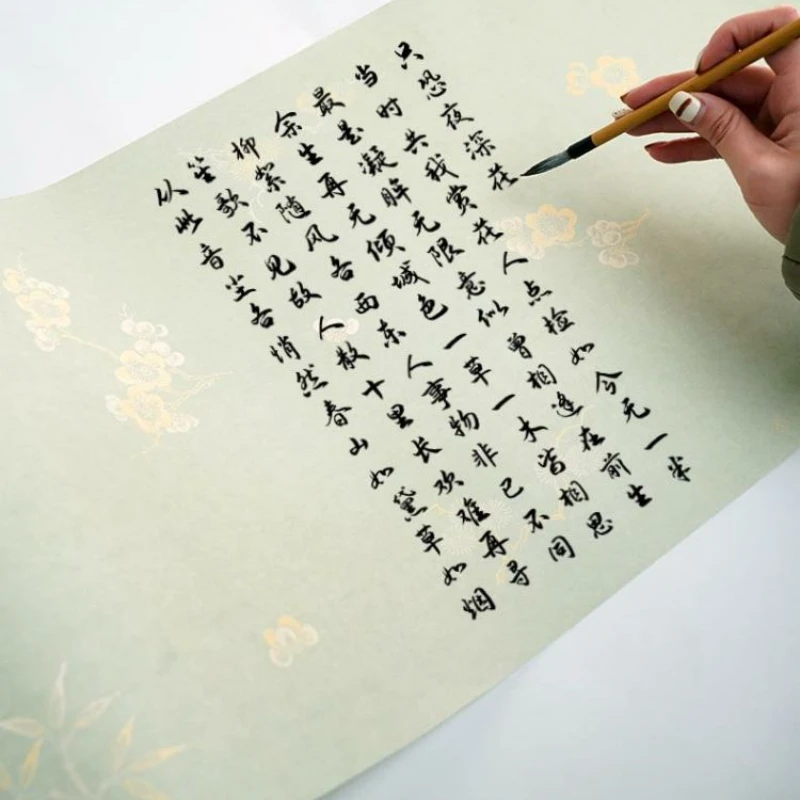 只恐夜深花
当时共我赏花人点检如今无一半
最是凝眸无限意似曾相逢在前生
余生再无倾城色一草一木皆相思
柳絮随风各西东人事物非已不同
笙歌不见故人散十里长欢难再寻
从此音尘各悄然春山如黛草如烟